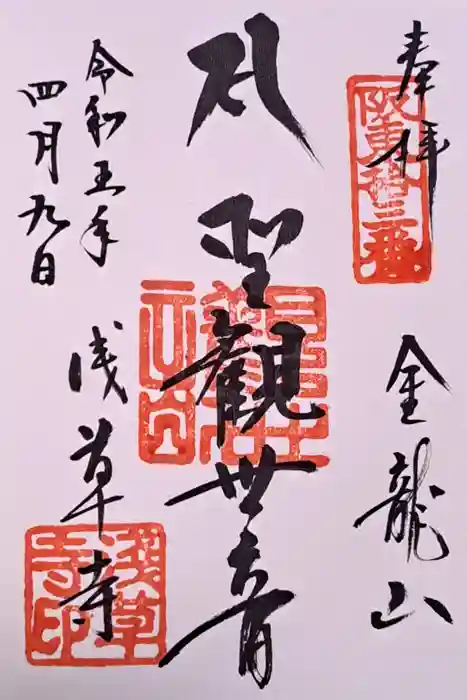 奉拝
阪東拾三番
金龍山
聖觀世音
令和五年
四月九日
浅草寺
淺草寺印